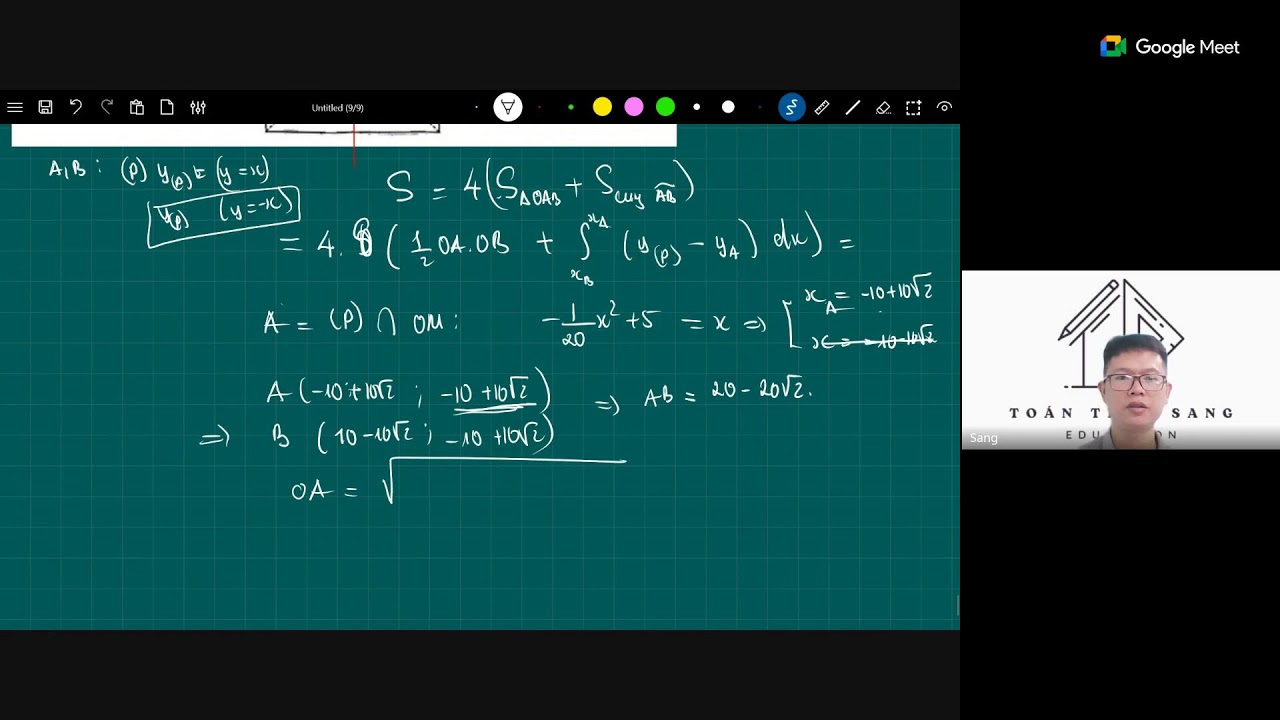 Google Meet
Untitled (9/9)
A,B : (P) y(P) = (y = x)
y(P) (y = -x)
S = 4(S△OAB + Scung AB)
= 4. ( 1/2 OA.OB + ∫_{xB}^{xA} (y(P) - yA) dx) =
A = (P) ∩ OM : -1/20 x² + 5 = x ⇒ [ xA = -10+10√2
x = -10-10√2
A (-10+10√2 ; -10+10√2) ⇒ AB = 20 - 20√2.
⇒ B (10-10√2 ; -10+10√2)
OA = √
TOÁN T SANG
Sang
EDU ON